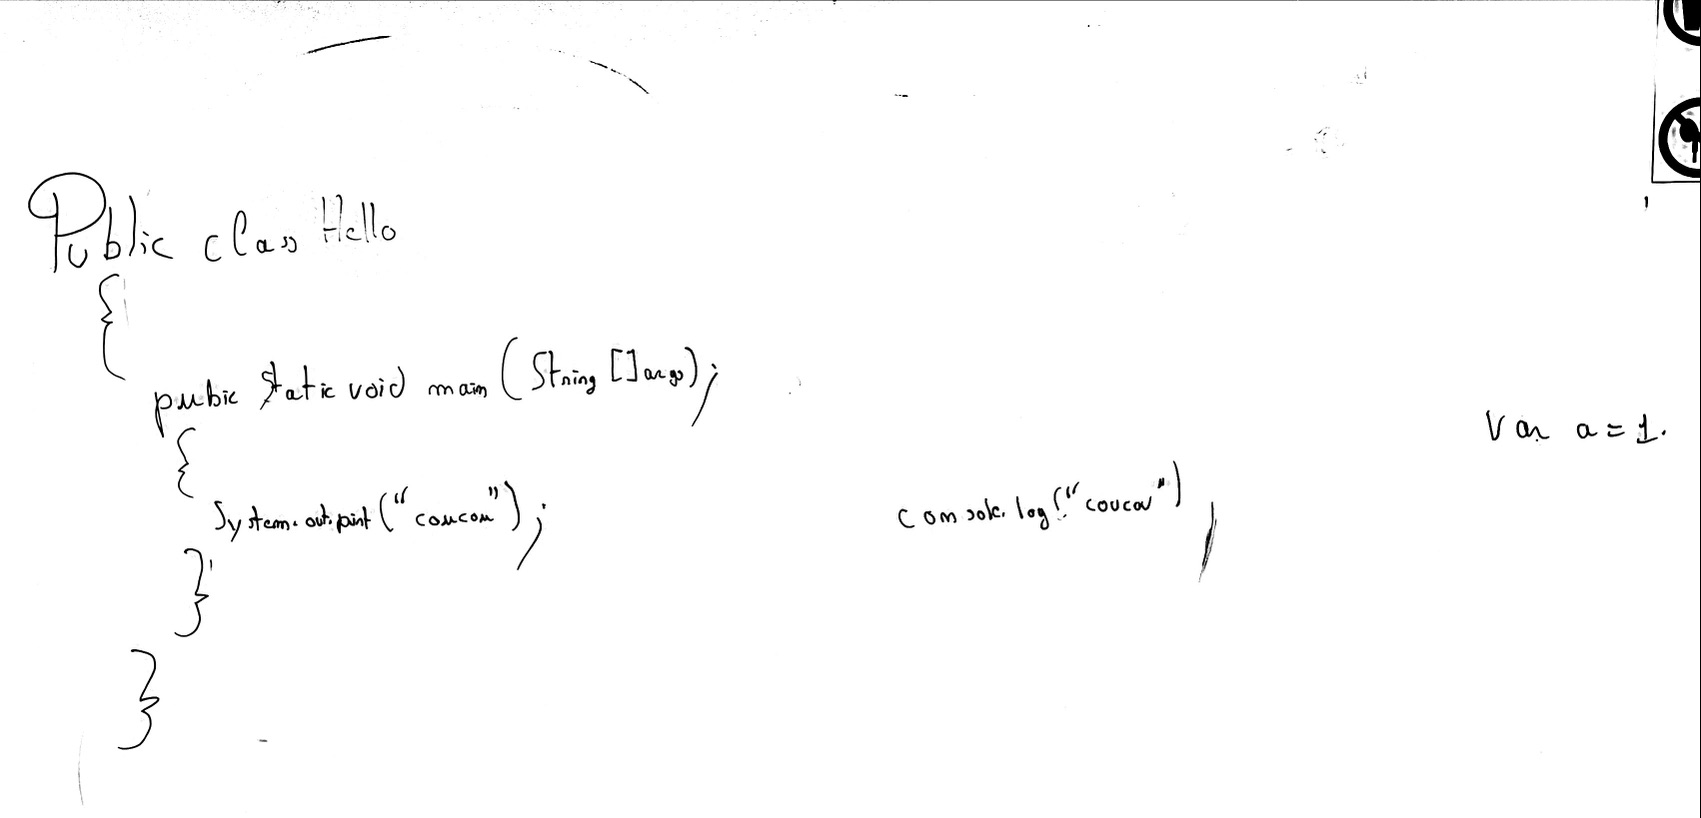 Public class Hello
{
pubic static void main (String []args);
{
System.out.print ("coucou");
}
}
console.log("coucou")
Var a = 1.